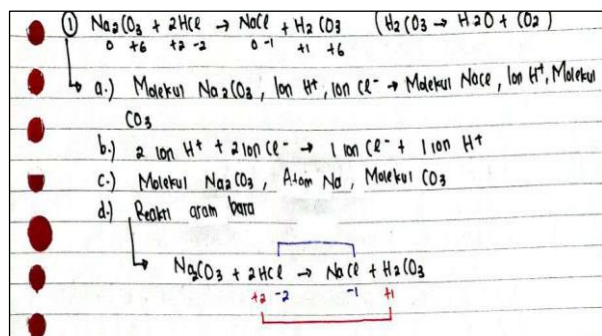 ① Na₂CO₃ + 2HCl → NaCl + H₂CO₃ (H₂CO₃ → H₂O + CO₂)
0 +6 +2 -2 0 -1 +1 +6
a.) Molekul Na₂CO₃, Ion H⁺, Ion Cl⁻ → Molekul NaCl, Ion H⁺, Molekul
CO₃
b.) 2 Ion H⁺ + 2 Ion Cl⁻ → 1 Ion Cl⁻ + 1 Ion H⁺
c.) Molekul Na₂CO₃, Atom Na, Molekul CO₃
d.) Reaksi asam basa
Na₂CO₃ + 2HCl → NaCl + H₂CO₃
+2 -2 -1 +1